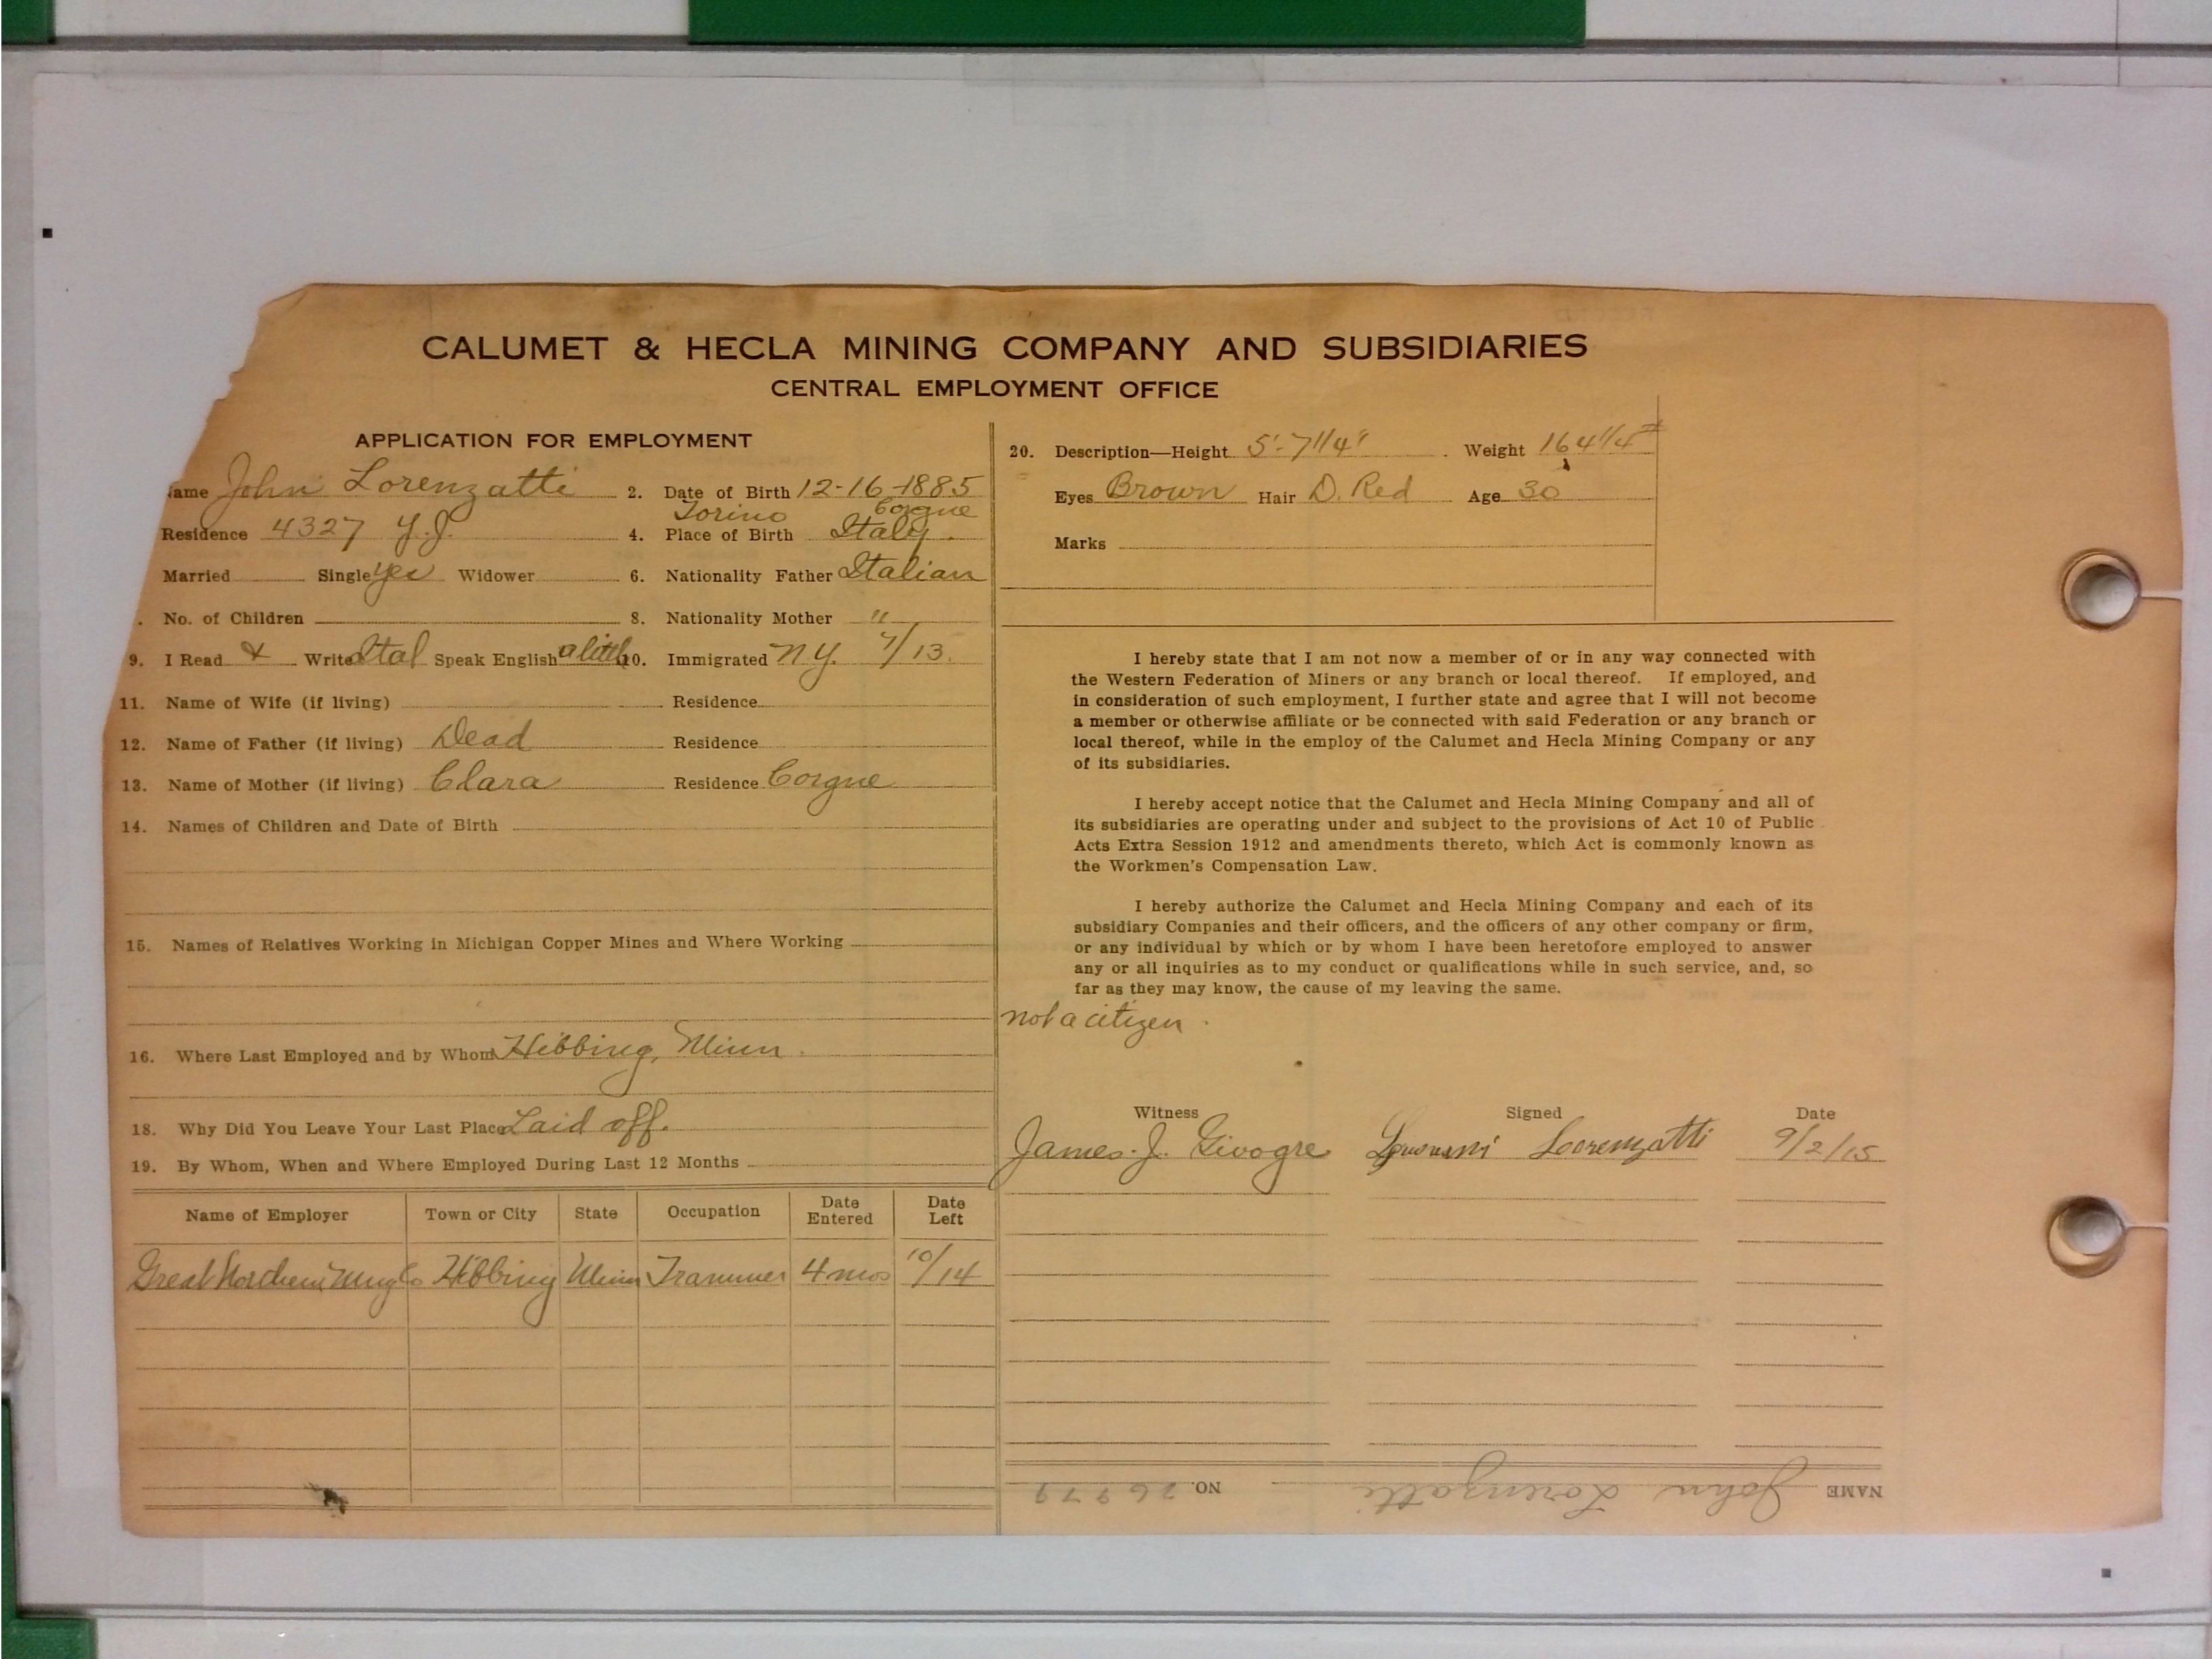 CALUMET & HECLA MINING COMPANY AND SUBSIDIARIES
CENTRAL EMPLOYMENT OFFICE
APPLICATION FOR EMPLOYMENT
ame John Lorenzatti 2. Date of Birth 12-16-1885
Torino Corgne
Residence 4327 Y.J. 4. Place of Birth Italy.
Married Single yes Widower 6. Nationality Father Italian
. No. of Children 8. Nationality Mother "
9. I Read & Write Ital Speak English a little 10. Immigrated N.Y. 7/13.
11. Name of Wife (if living) Residence
12. Name of Father (if living) Dead Residence
13. Name of Mother (if living) Clara Residence Corgne
14. Names of Children and Date of Birth
15. Names of Relatives Working in Michigan Copper Mines and Where Working
16. Where Last Employed and by Whom Hibbing, Minn.
18. Why Did You Leave Your Last Place Laid off.
19. By Whom, When and Where Employed During Last 12 Months
Name of Employer Town or City State Occupation Date Entered Date Left
Great Northern Mng Co Hibbing Minn Trammer 4 mos 10/14
20. Description—Height 5'-7 1/4" Weight 164 1/4 #
Eyes Brown Hair D. Red Age 30
Marks
I hereby state that I am not now a member of or in any way connected with
the Western Federation of Miners or any branch or local thereof. If employed, and
in consideration of such employment, I further state and agree that I will not become
a member or otherwise affiliate or be connected with said Federation or any branch or
local thereof, while in the employ of the Calumet and Hecla Mining Company or any
of its subsidiaries.
I hereby accept notice that the Calumet and Hecla Mining Company and all of
its subsidiaries are operating under and subject to the provisions of Act 10 of Public
Acts Extra Session 1912 and amendments thereto, which Act is commonly known as
the Workmen's Compensation Law.
I hereby authorize the Calumet and Hecla Mining Company and each of its
subsidiary Companies and their officers, and the officers of any other company or firm,
or any individual by which or by whom I have been heretofore employed to answer
any or all inquiries as to my conduct or qualifications while in such service, and, so
far as they may know, the cause of my leaving the same.
not a citizen.
Witness Signed Date
James. J. Givogre Lorenzatti 9/2/15
NAME John Lorenzatti NO. 26979